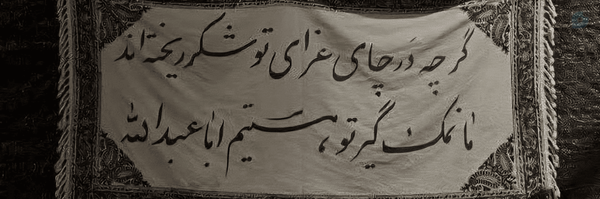 گرچه در چای عزای تو شکر ریخته اند
ما نمک گیر تو، هستیم اباعبدالله